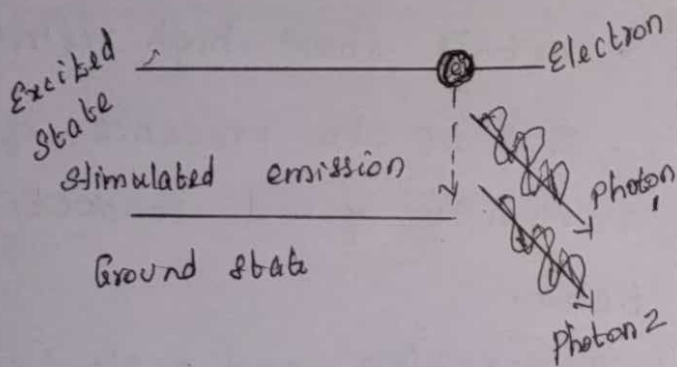 Excited
State
e⁻
Electron
Stimulated emission
Photon 1
Ground state
Photon 2